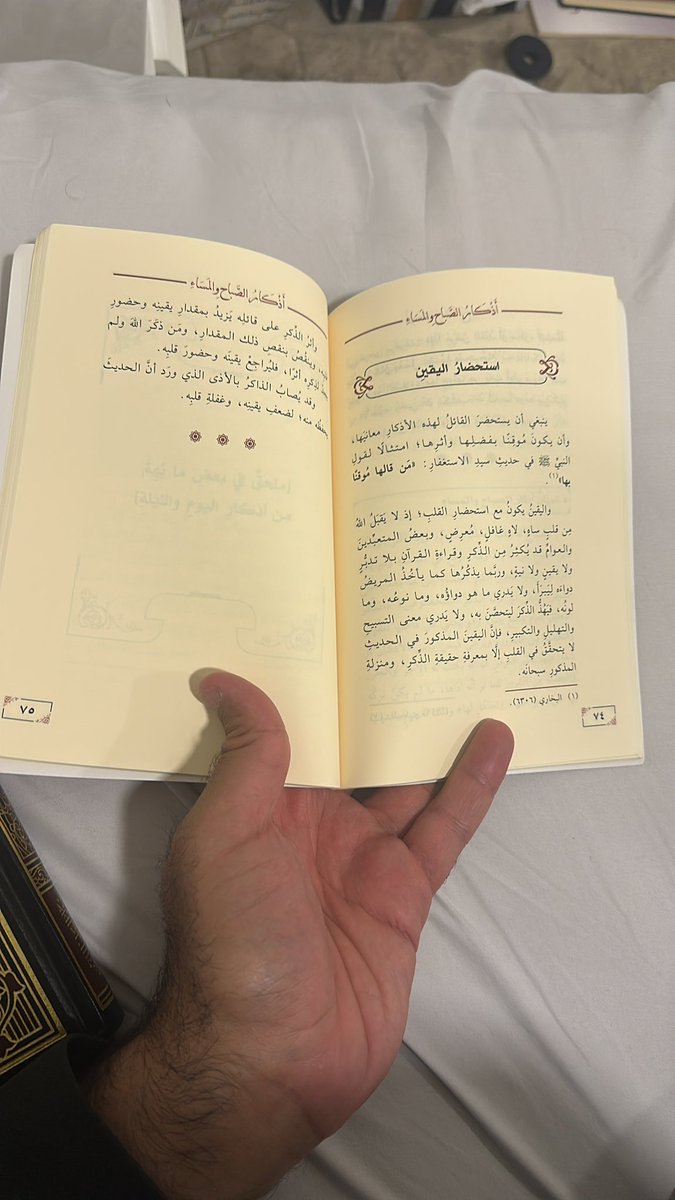 أَذْكَارُ الصَّبَاحِ وَالمَسَاءِ
استحضارُ اليقينِ
ينبغي أن يستحضرَ القائلُ لهذه الأذكارِ معانيَها،
وأن يكونَ مُوقِنًا بفضلِها وأثرِها؛ امتثالًا لقولِ
النبيِّ ﷺ في حديثِ سيدِ الاستغفارِ: «مَن قالها مُوقنًا
بها»(١).
واليقينُ يكونُ مع استحضارِ القلبِ؛ إذ لا يَقبَلُ اللهُ
مِن قلبٍ ساهٍ، لاهٍ غافلٍ، مُعرِضٍ، وبعضُ المتعبِّدينَ
والعوامِّ قد يُكثِرُ مِن الذِّكرِ وقراءةِ القرآنِ بلا تدبُّرٍ
ولا يقينٍ ولا نيةٍ، وربَّما يذكُرُها كما يأخُذُ المريضُ
دواءَه لِيَبرَأَ، ولا يَدري ما هو دواؤُه، وما نوعُه، وما
لونُه، فيَهُذُّ الذِّكرَ ليتحصَّنَ به، ولا يَدري معنى التسبيحِ
والتهليلِ والتكبيرِ، فإنَّ اليقينَ المذكورَ في الحديثِ
لا يتحقَّقُ في القلبِ إلَّا بمعرفةِ حقيقةِ الذِّكرِ، ومنزلةِ
المذكورِ سبحانَه.
(١) البخاري (٦٣٠٦).
٧٤
أَذْكَارُ الصَّبَاحِ وَالمَسَاءِ
وأثرُ الذِّكرِ على قائلِه يَزيدُ بمقدارِ يقينِه وحضورِ
قلبِه، وينقُصُ بنقصِ ذلك المقدارِ، ومَن ذكَرَ اللهَ ولم
لذِكرِه أثرًا، فليُراجِعْ يقينَه وحضورَ قلبِه.
وقد يُصابُ الذاكرُ بالأذى الذي ورَد أنَّ الحديثَ
يحفظُه منه؛ لضعفِ يقينِه، وغفلةِ قلبِه.
٧٥